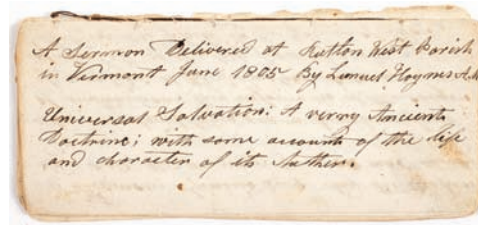 A Sermon Delivered at Rutlon West Parish
in Vermont June 1805 By Lemuel Haynes A.M
Universal Salvation: A verry Ancient
Doctrine; with some account of the life
and character of its Auther.